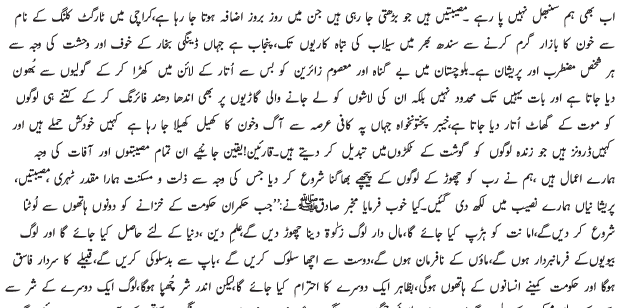 اب بھی ہم سنبھل نہیں پا رہے ۔مصیبتیں ہیں جو بڑھتی جا رہی ہیں جن میں روز بروز اضافہ ہوتا جا رہا ہے،کراچی میں ٹارگٹ کلنگ کے نام
سے خون کا بازار گرم کرنے سے سندھ بھر میں سیلاب کی تباہ کاریوں تک،پنجاب ہے جہاں ڈینگی بخار کے خوف اور وحشت کی وجہ سے
ہر شخص مضطرب اور پریشان ہے۔بلوچستان میں بے گناہ اور معصوم زائرین کو بس سے اُتار کے لائن میں کھڑا کر کے گولیوں سے بُھون
دیا جاتا ہے اور بات یہیں تک محدود نہیں بلکہ ان کی لاشوں کو لے جانے والی گاڑیوں پر بھی اندھا دھند فائرنگ کر کے کتنے ہی لوگوں
کو موت کے گھاٹ اُتار دیا جاتا ہے،خیبر پختونخواہ جہاں پہ کافی عرصہ سے آگ وخون کا کھیل کھیلا جا رہا ہے کہیں خودکش حملے ہیں اور
کہیں ڈرونز ہیں جو زندہ لوگوں کو گوشت کے ٹکڑوں میں تبدیل کر دیتے ہیں۔قارئین!یقین جانیئے ان تمام مصیبتوں اور آفات کی وجہ
ہمارے اعمال ہیں ،ہم نے رب کو چھوڑ کے لوگوں کے پیچھے بھاگنا شروع کر دیا جس کی وجہ سے ذلت و مسکنت ہمارا مقدر ٹھہری مصیبتیں،
پریشا نیاں ہمارے نصیب میں لکھ دی گئیں۔کیا خوب فرمایا مخبر صادقﷺ نے:’’جب حکمران حکومت کے خزانے کو دونوں ہاتھوں سے لُوٹنا
شروع کر دیں گے،اما نت کو ہڑپ کیا جائے گا،مال دار لوگ زکوٰۃ دینا چھوڑ دیں گے،علمِ دین ،دنیا کے لئے حاصل کیا جائے گا اور لوگ
بیویوں کے فرمانبردار ہوں گے،ماؤں کے نافرمان ہوں گے،دوست سے اچھا سلوک کریں گے ،باپ سے بدسلوکی کریں گے،قبیلے کا سردار فاسق
ہوگا اور حکومت کمینے انسانوں کے ہاتھوں ہوگی،بظاہر ایک دوسرے کا احترام کیا جائے گا،لیکن اندر شر چُھپا ہوگا،لوگ ایک دوسرے کے شر سے